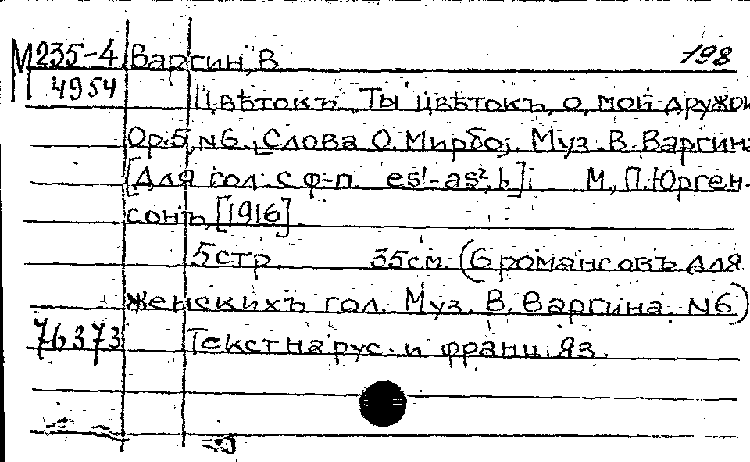 М 235-4 Варгин, В. 198
П 4954
Цвѣтокъ. Ты цвѣтокъ, о, мой дружок
Op.5, N6. Слова О. Мирбо; Муз. В. Варгина
[Для гол. с ф-п. es¹-as², h]; М., П. Юрген-
сонъ, [1916].
5 стр. 35 см. (6 романсовъ для
женскихъ гол. Муз. В. Варгина. N6)
76373 Текст на рус. и франц. яз.